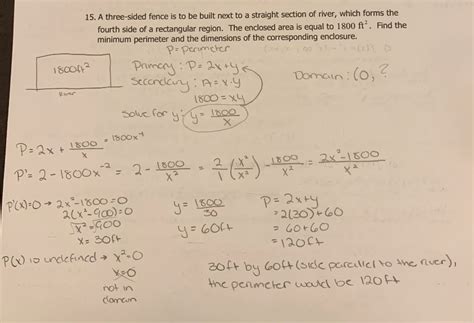 15. A three-sided fence is to be built next to a straight section of river, which forms the
fourth side of a rectangular region. The enclosed area is equal to 1800 ft². Find the
minimum perimeter and the dimensions of the corresponding enclosure.
P = perimeter
1800ft²
River
Primary: P = 2x + y
Secondary: A = x·y
1800 = xy
Domain: (0, ?
Solve for y: y = 1800/x
P = 2x + 1800/x = 1800x⁻¹
P' = 2 - 1800x⁻² = 2 - 1800/x² = 2/1 (x²/x²) - 1800/x² = 2x² - 1800/x²
P'(x)=0 → 2x² - 1800 = 0
2(x² - 900) = 0
√x² = √900
x = 30ft
y = 1800/30
y = 60ft
P = 2x + y
= 2(30) + 60
= 60 + 60
= 120ft
P(x) is undefined → x² = 0
x = 0
not in
domain
30ft by 60ft (side parallel to the river),
the perimeter would be 120ft